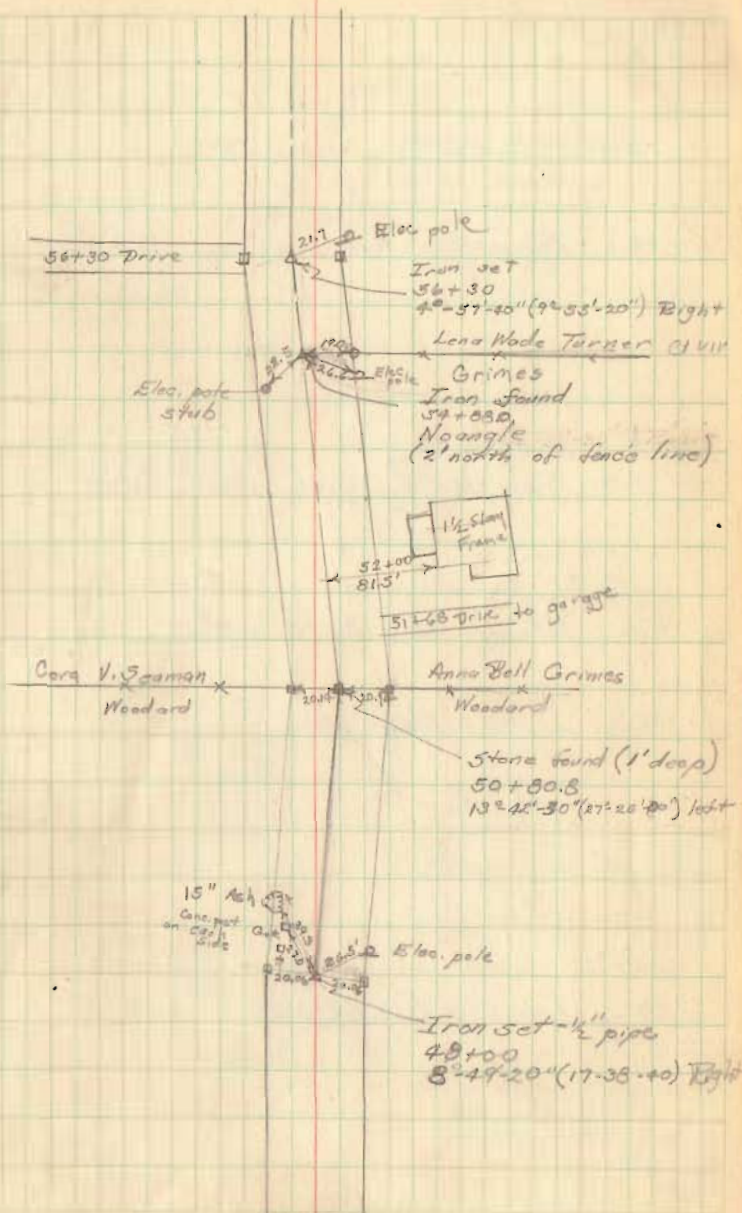 21.7 Elec. pole
56+30 Drive
Iron set
56+30
4°-57'-40" (9°-55'-20") Right
Lena Wade Turner et vir
Grimes
Elec. pole
stub
22.5
26.2
Elec. pole
Iron found
54+88.0
No angle
(2' north of fence line)
1½ Story
Frame
52+00
81.5'
51+68 Drive to garage
Cora V. Seaman
Woodard
Anna Bell Grimes
Woodard
20.14
Stone found (1' deep)
50+80.8
13°-42'-30" (27°-26'-00") left
15" Ash
Conc. post
on each
side
26.5' Elec. pole
20.06
20.06
Iron set - ½" pipe
48+00
8°-49'-20" (17-38-40) Right